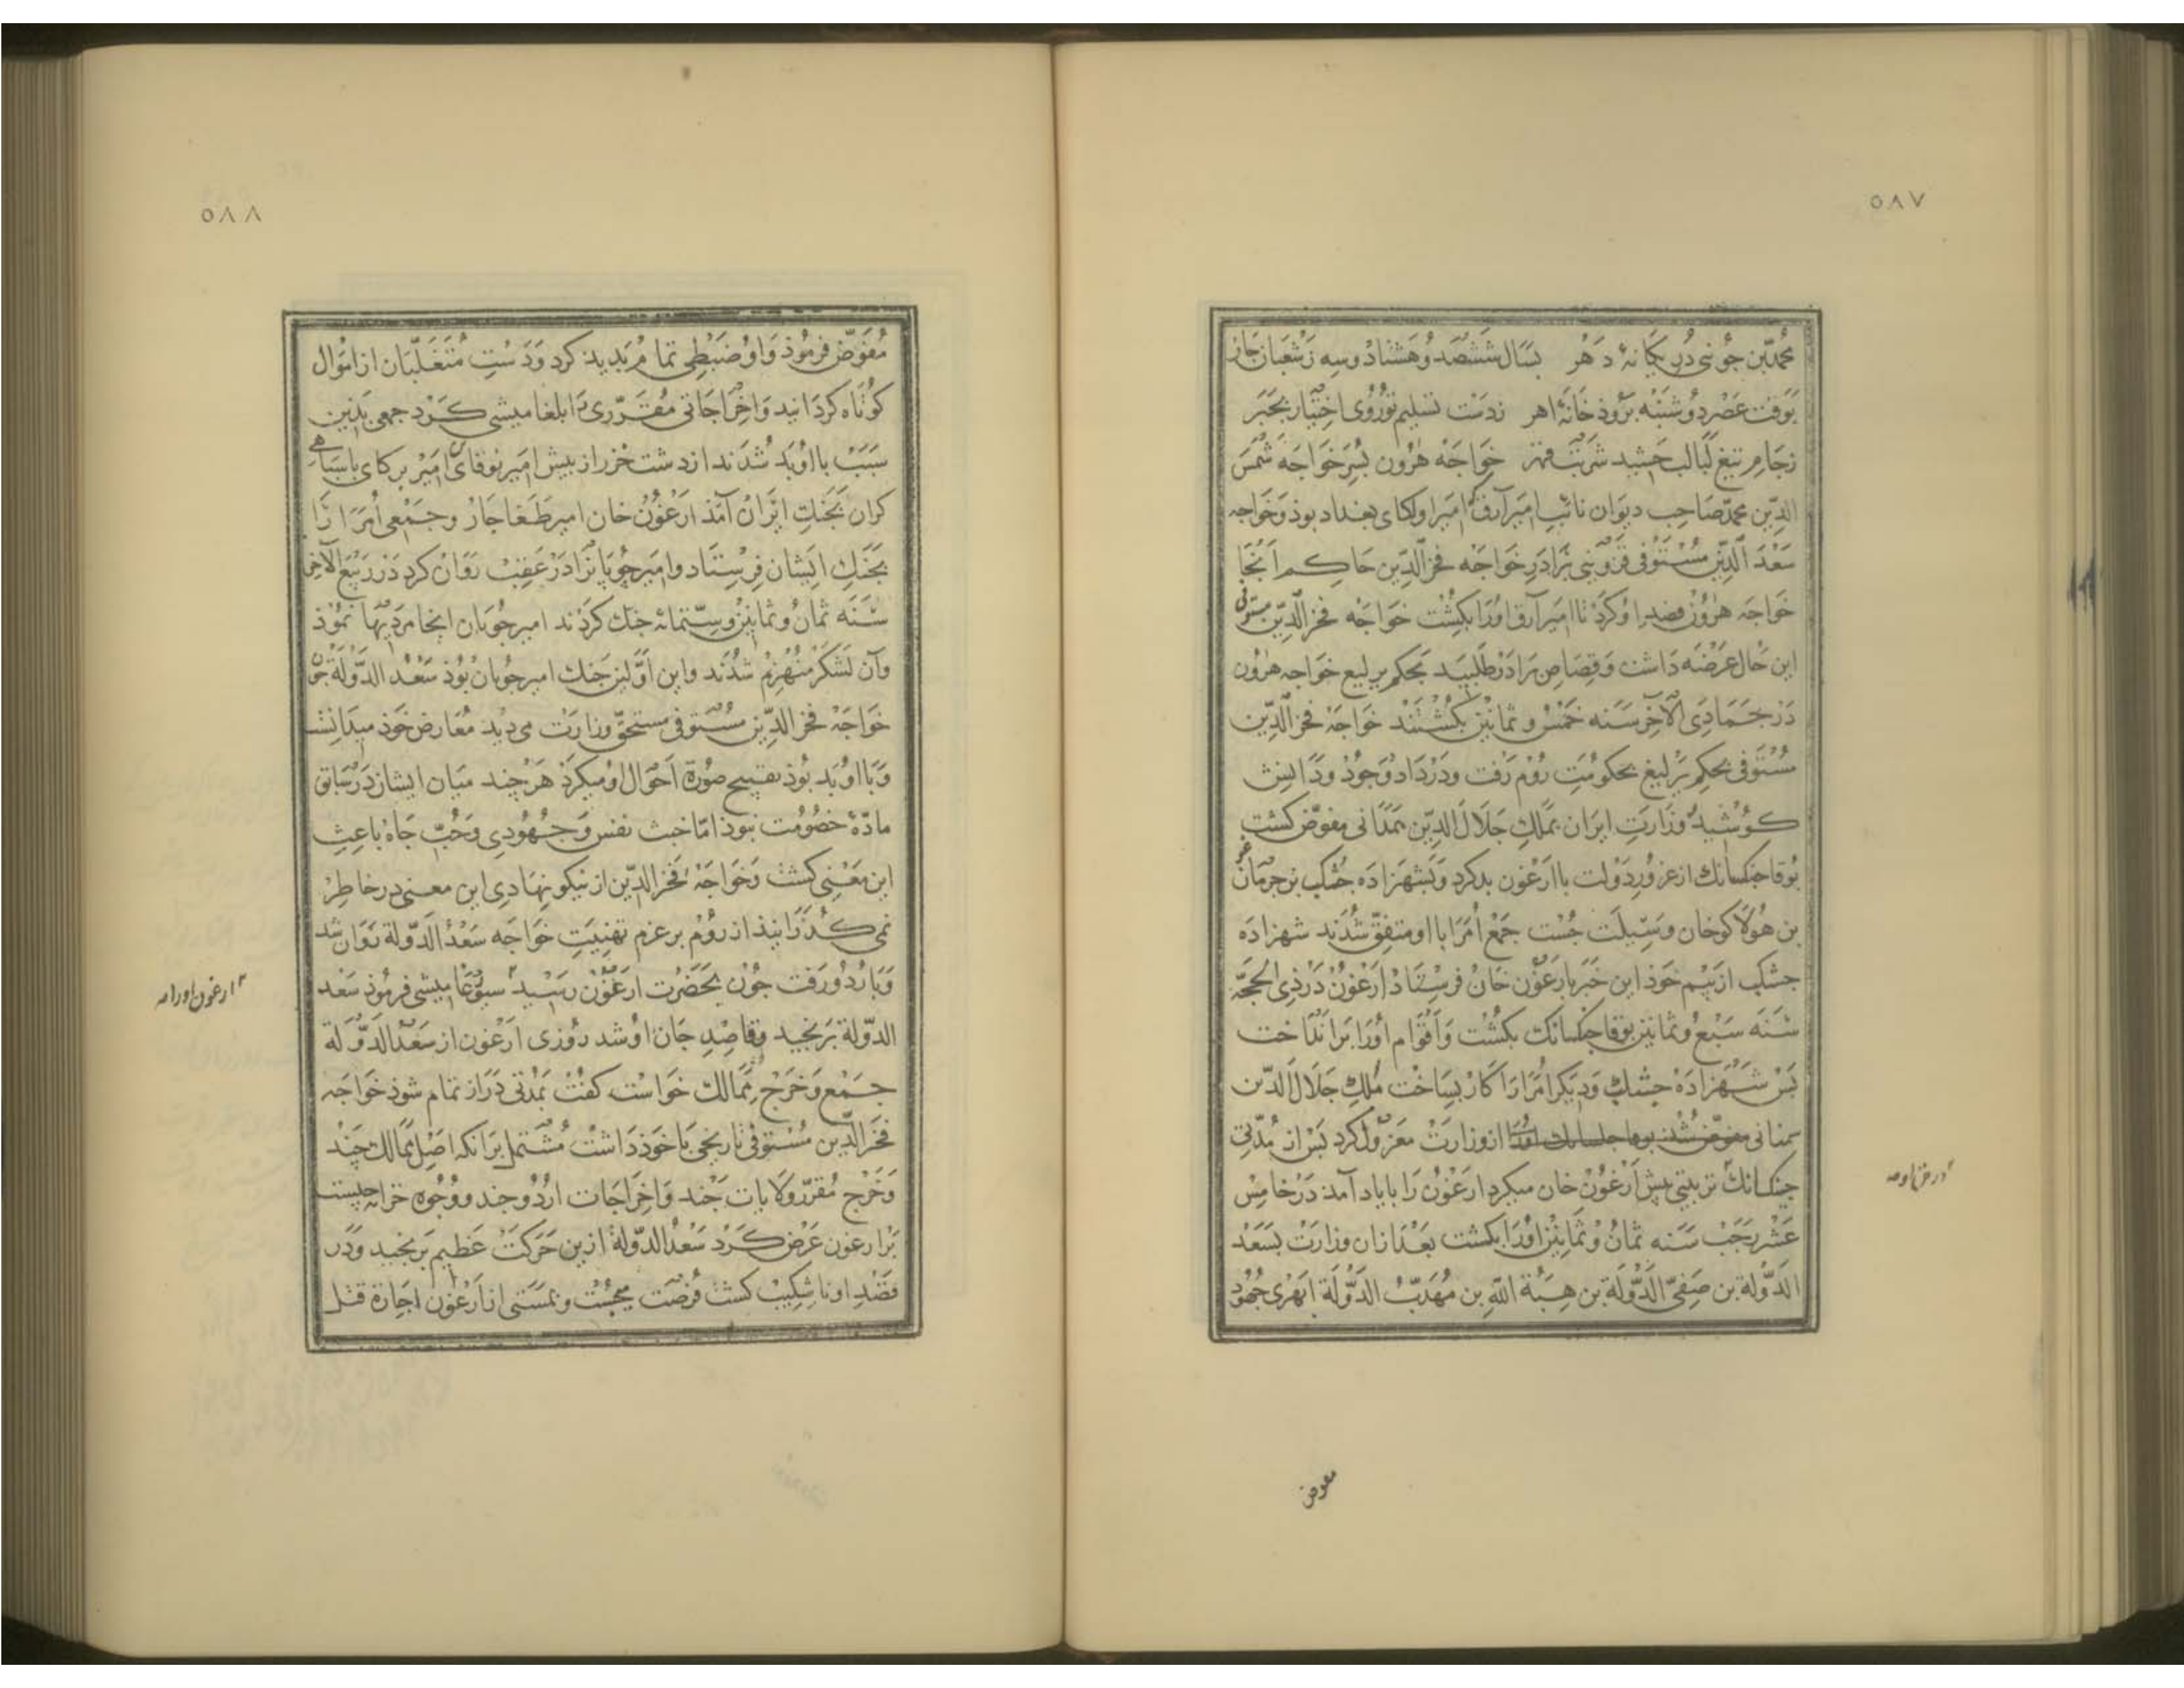 ٥٨٧
محمد بن جوینی در یکانهٔ دهر بسال ششصد و هشتاد و سه ز شعبان جاز
بوقت عصر دوشنبه برود خانهٔ اهر ز دست تسلیم نوروی اختیار بخبر
ز جام تیغ لبالب چشید شربت قهر خواجه هرون بسر خواجه شمس
الدین محمد صاحب دیوان نائب امیر آرق امیر اولکای بغداد بوذ وخواجه
سعد الدین مستوفی قزوینی برادر خواجه فخر الدین حاکم آنجا
خواجه هرون قصد او کرد تا امیر آرق اورا بکشت خواجه فخر الدین مستوفی
این حال عرضه داشت وقصاص برادر طلبید بحکم یرلیغ خواجه هرون
در جمادی الآخر سنه خمس وثمانین بکشتند خواجه فخر الدین
مستوفی بحکم یرلیغ بحکومت روم رفت ودر داد وجود ودانش
کوشید وزارت ایران بملک جلال الدین سمنانی مفوض کشت
بوقا جنکسانک از غرور دولت با ارغون بد کرد وبشهزاده جشکب بن جرمغان
بن هولاکوخان وسیلت جست جمع امرا با او متفق شدند شهزاده
جشکب از بیم خوذ این خبر بارغون خان فرستاد ارغون در ذی الحجه
سنه سبع وثمانین بوقا جنکسانک بکشت واقوام اورا برانداخت
بس شهزاده جشکب ودیکر امرا را کار بساخت ملک جلال الدین
سمنانی از وزارت معزول کرد بس از مدتی
جنکسانک تربیتی بیش ارغون خان میکرد ارغون را با یاد آمد در خامس
عشر رجب سنه ثمان وثمانین اورا بکشت بعد از ان وزارت بسعد
الدولة بن صفی الدولة بن هبة الله بن مهذب الدولة ابهری جهود
مفوض
٥٨٨
مفوض فرموذ واو ضبطی تمام بدید کرد ودست متغلبان از اموال
کوتاه کردانید واخراجاتی مقرری را ابلغامیشی کرد جمعی بدین
سبب با او بد شدند از دشت خزر از بیش امیر نوقای امیر برکای با سباهی
کران بجنک ایران آمد ارغون خان امیر طغاجار وجمعی امرا را
بجنک ایشان فرستاد وامیر جوبان را در عقب روان کرد در ربیع الآخر
سنه ثمان وثمانین وستمائه جنک کردند امیر جوبان آنجا مردیها نموذ
وآن لشکر منهزم شدند واین اولین جنک امیر جوبان بوذ سعد الدولة جون
خواجه فخر الدین مستوفی مستحق وزارت می دید معارض خوذ میدانست
وبا او بد بوذ تقبیح صورة احوال او میکرد هر چند میان ایشان در سابق
مادهٔ خصومت نبوذ اما خبث نفس وجهودی وحب جاه باعث
این معنی کشت وخواجه فخر الدین از نیکو نهادی این معنی در خاطر
نمی کذرانید از روم بر عزم تهنیت خواجه سعد الدولة روان شد
وباردو رفت جون بحضرت ارغون رسید سیورغامیشی فرموذ سعد
الدولة برنجید وقاصد جان او شد روزی ارغون از سعد الدولة
جمع وخرج ممالک خواست کفت بمدتی دراز تمام شوذ خواجه
فخر الدین مستوفی تاریخی با خوذ داشت مشتمل بر انکه اصل ممالک چند
وخرج مقرر ولایات چند واخراجات اردو چند ووجوه خزانه چیست
بر ارغون عرض کرد سعد الدولة ازین حرکت عظیم برنجید ودر
قصد او ناشکیب کشت فرصت میجست وبمستی از ارغون اجازة قتل
ارغون اورا